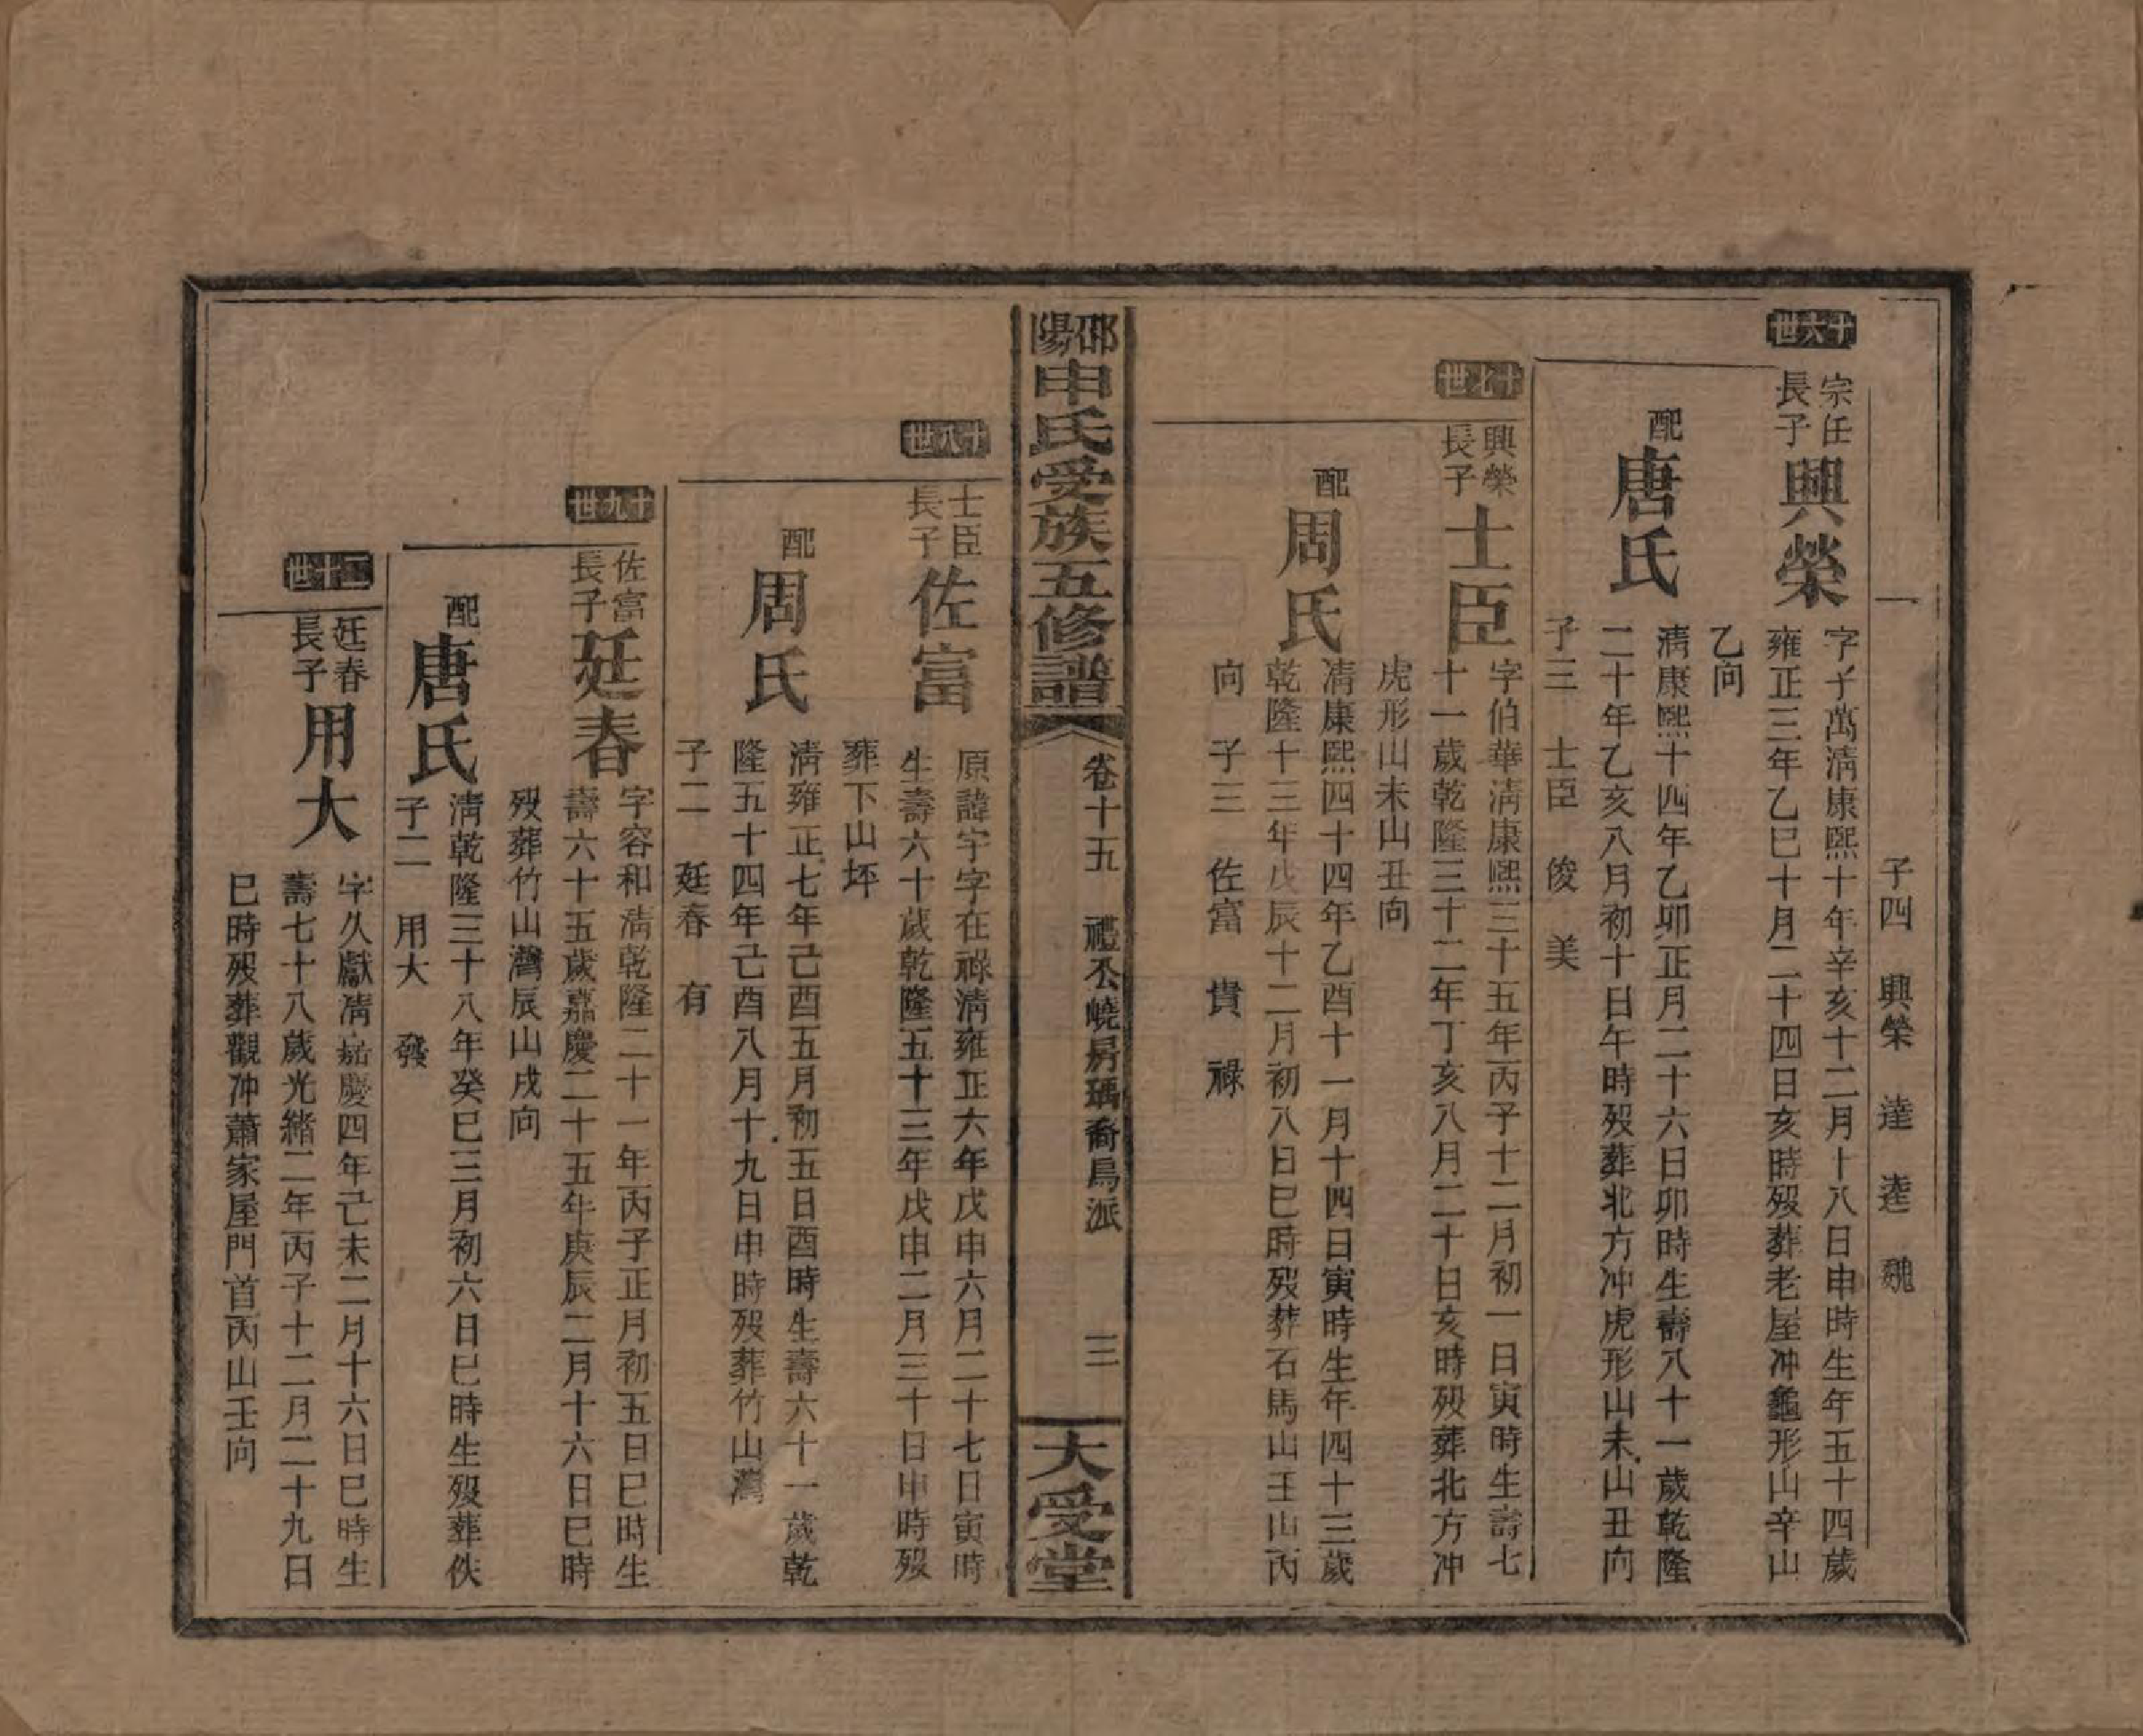 子四　興榮　達　逵　魏
十六世
宗任長子
興榮
字子萬淸康熙十年辛亥十二月十八日申時生年五十四歲
雍正三年乙巳十月二十四日亥時歿葬老屋冲龜形山辛山
乙向
配
唐氏
淸康熙十四年乙卯正月二十六日卯時生壽八十一歲乾隆
二十年乙亥八月初十日午時歿葬北方冲虎形山未山丑向
子三　士臣　俊　美
十七世
興榮長子
士臣
字伯華淸康熙三十五年丙子十二月初一日寅時生壽七
十一歲乾隆三十二年丁亥八月二十日亥時歿葬北方冲
虎形山未山丑向
配
周氏
淸康熙四十四年乙酉十一月十四日寅時生年四十三歲
乾隆十三年戊辰十二月初八日巳時歿葬石馬山壬山丙
向　子三　佐富　貴　祿
邵陽申氏受族五修譜
卷十五　禮公嶢房瑀裔爲派　三
大受堂
十八世
士臣長子
佐富
原諱宇字在祿淸雍正六年戊申六月二十七日寅時
生壽六十歲乾隆五十三年戊申二月三十日申時歿
葬下山坪
配
周氏
淸雍正七年己酉五月初五日酉時生壽六十一歲乾
隆五十四年己酉八月十九日申時歿葬竹山灣
子二　廷春　有
十九世
佐富長子
廷春
字容和淸乾隆二十一年丙子正月初五日巳時生
壽六十五歲嘉慶二十五年庚辰二月十六日巳時
歿葬竹山灣辰山戌向
配
唐氏
淸乾隆三十八年癸巳三月初六日巳時生歿葬佚
子二　用大　發
二十世
廷春長子
用大
字久獻淸嘉慶四年己未二月十六日巳時生
壽七十八歲光緖二年丙子十二月二十九日
巳時歿葬觀冲蕭家屋門首丙山壬向